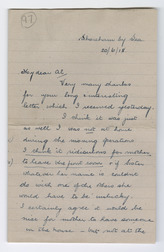 97
by Sea
20/6/18
My dear Al,
Very many thanks
for your long interesting
letter, which I received yesterday.
I think it was just
as well I was not at home
during the moving operations
I think it ridiculous for mother
to leave the
whatever her name is couldn't
do with one of the there she
would have to be
I certainly agree it would be
nice for mother to have someone
in the house - but not all the